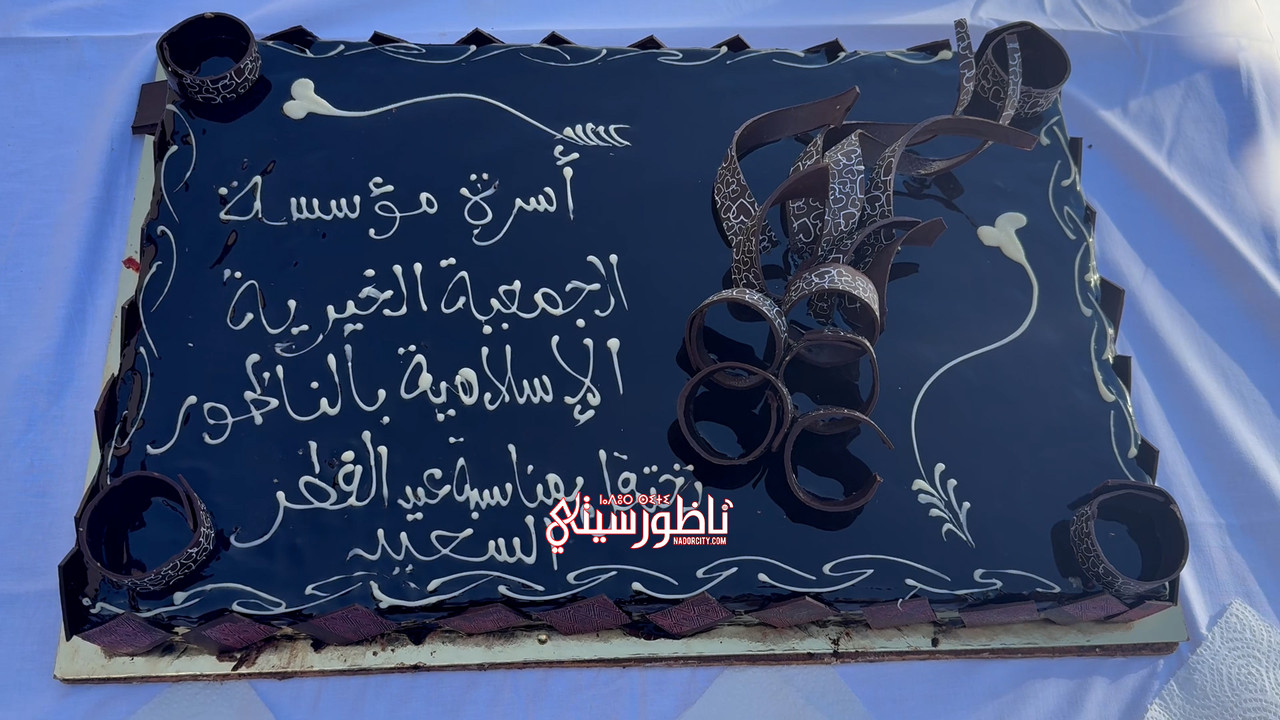 أسرة مؤسسة
الجمعية الخيرية
الإسلامية بالناظور
تحتفل بمناسبة عيد الفطر
السعيد
ناظورسيتي
NADORCITY.COM